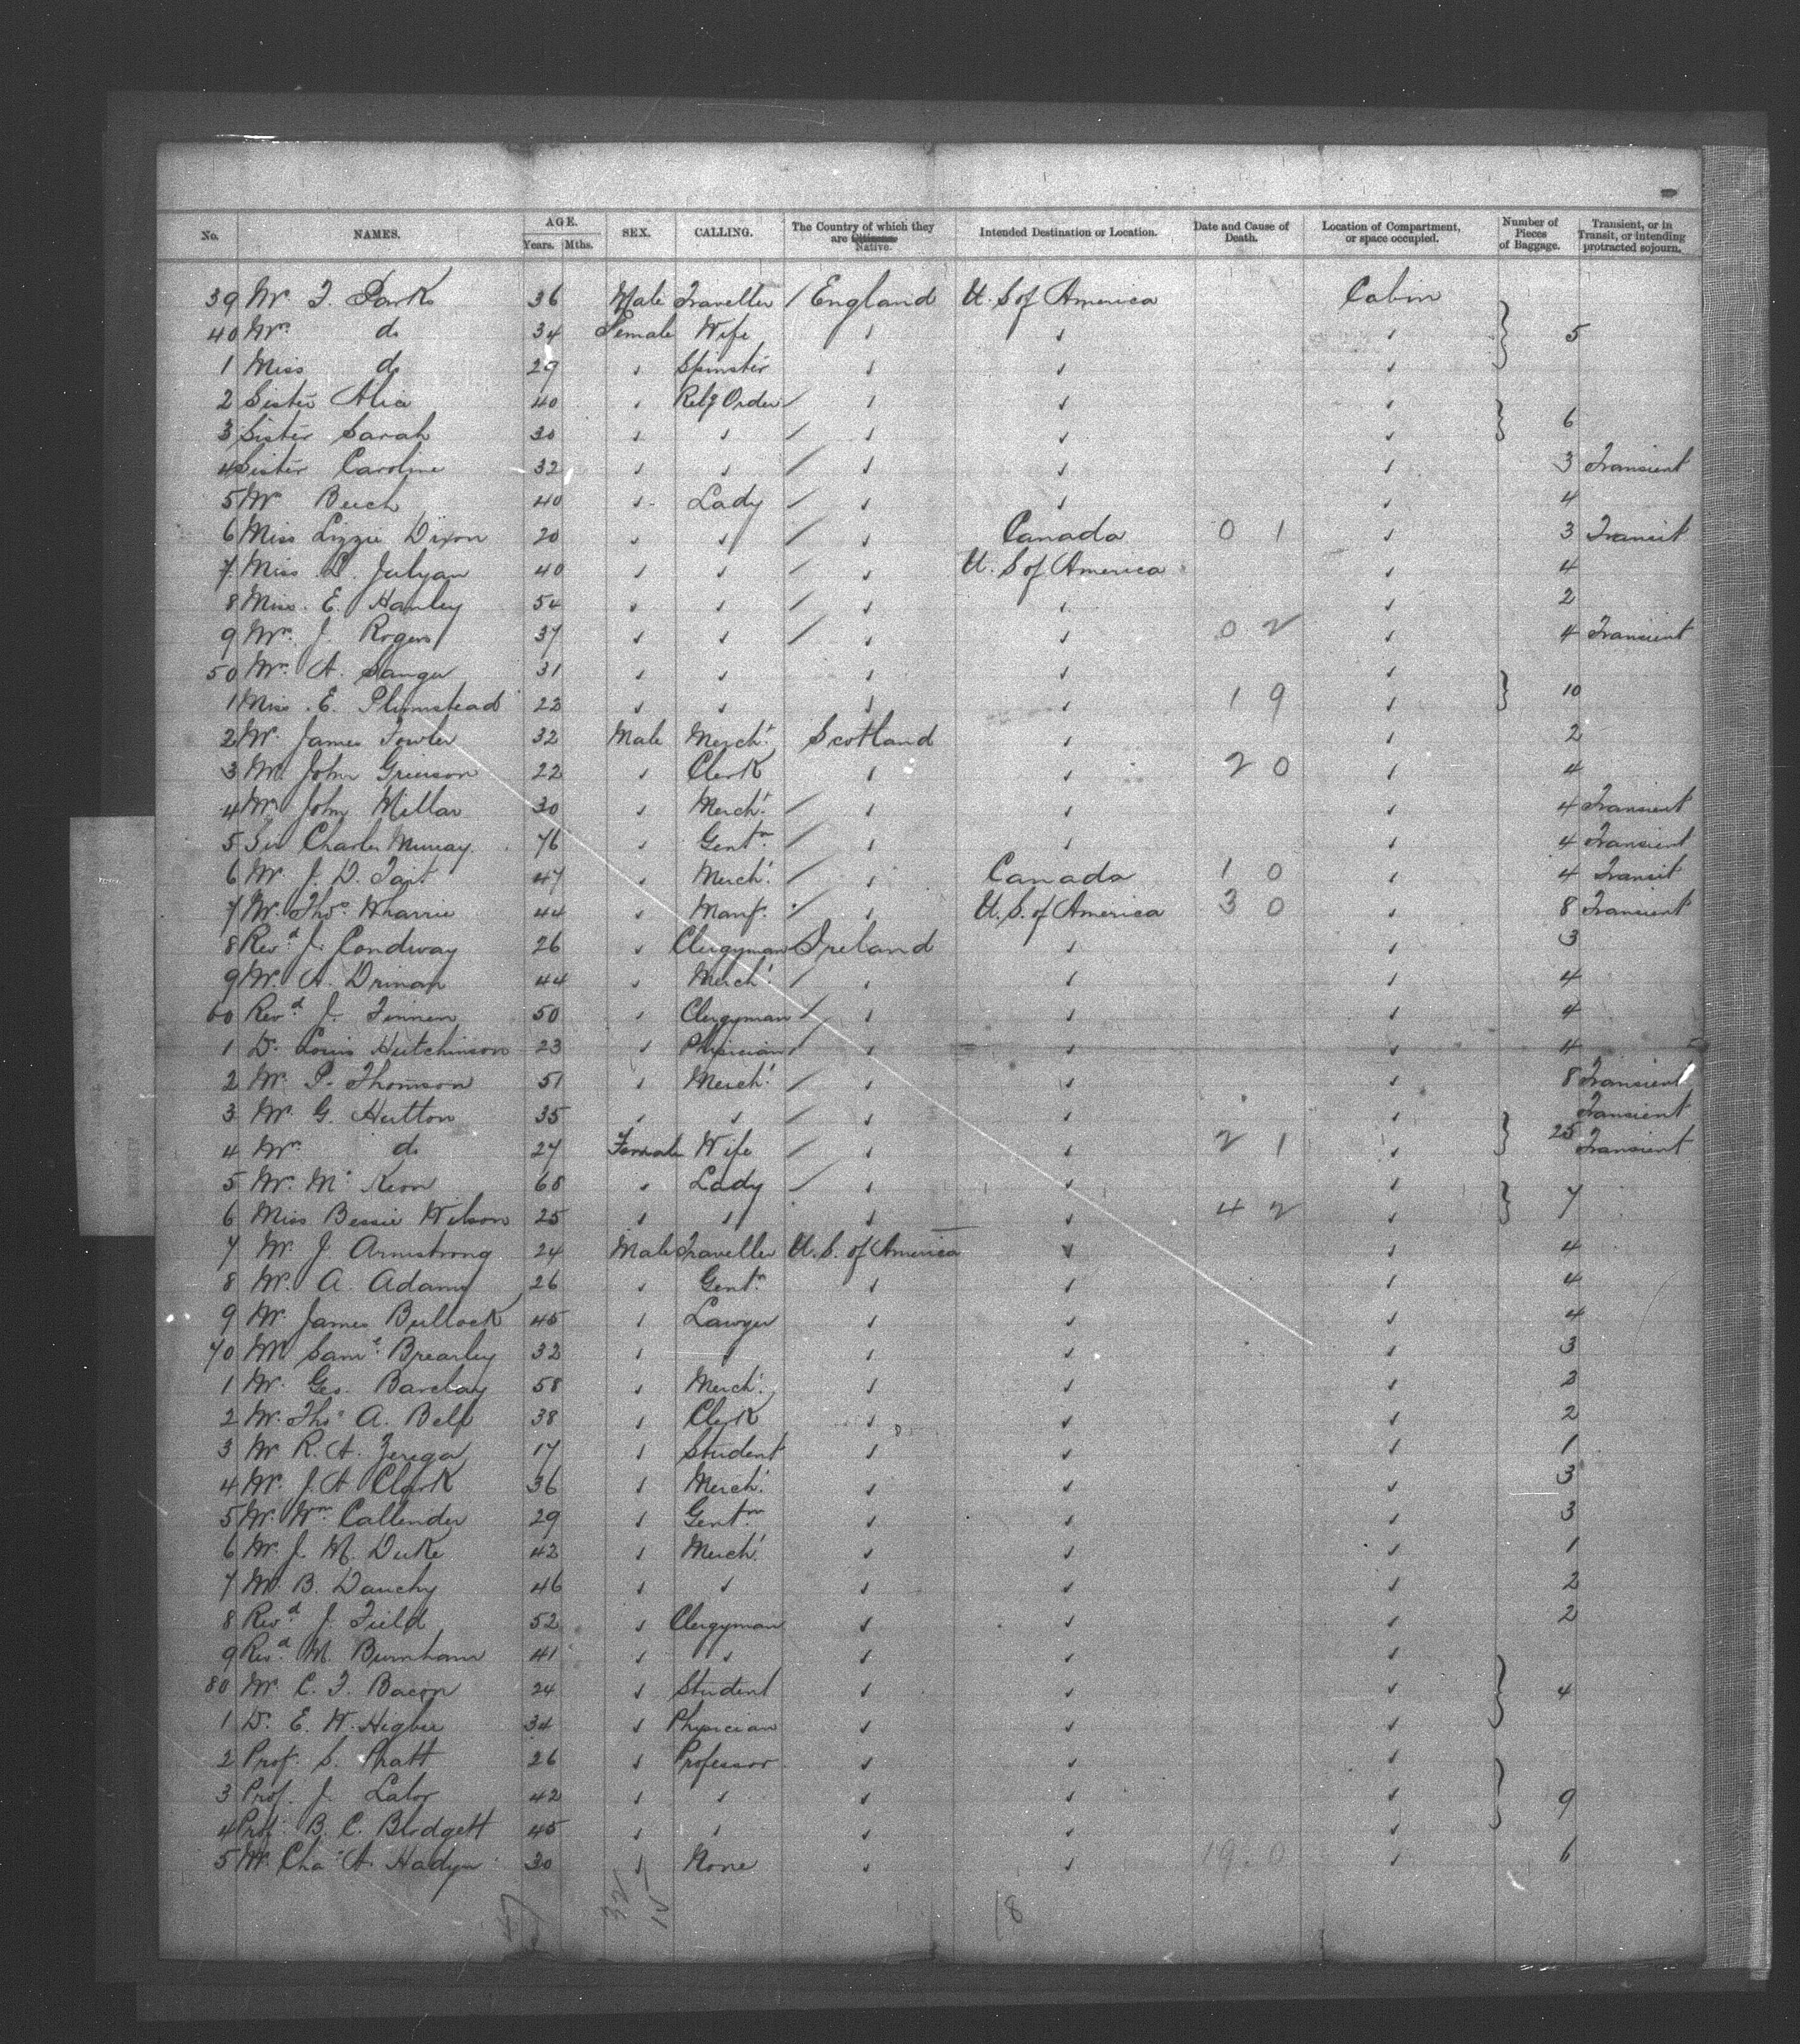 No. NAMES. AGE. Years. Mths. SEX. CALLING. The Country of which they are Citizens Native. Intended Destination or Location. Date and Cause of Death. Location of Compartment, or space occupied. Number of Pieces of Baggage. Transient, or in Transit, or intending protracted sojourn.
39 Mr. T. Park 36 Male Traveller / England U. S of America Cabin
40 Mrs. do 34 Female Wife 5
1 Miss do 29 Spinster
2 Sister 40 Relg Order /
3 Sister Sarah 30 / 6
4 Sister Caroline 32 / 3 Transient
5 40 Lady / 4
6 Miss Lizzie Dixon 20 / Canada 0 1 3 Transit
7 Miss L. Julyan 40 / U. S of America 4
8 Miss. E. Hanley 54 / 2
9 Mrs. J. Rogers 37 / 0 2 4 Transient
50 Mrs. A. Sanger 31
1 Miss. E. Plumstead 22 1 9 10
2 Mr. James Fowler 32 Male Mercht. Scotland 2
3 Mr. John Grierson 22 Clerk 2 0 4
4 Mr. John Millar 30 Mercht. / 4 Transient
5 Sir Charles Murray 76 Gentn. / 4 Transient
6 Mr. J. D. 47 Mercht. / Canada 1 0 4 Transit
7 Mr. Thos. Wharrie 44 Manf. / U. S. of America 3 0 8 Transient
8 Revd. J. Condway 26 Clergyman Ireland 3
9 Mr. A. Drinan 44 Mercht. / 4
60 Revd. J. Finnen 50 Clergyman / 4
1 Dr. Louis Hutchinson 23 Physician / 4
2 Mr. P. Thomson 51 Mercht. / 8 Transient
3 Mr. G. Hutton 35 / Transient
4 Mrs. do 27 Female Wife / 2 1 25 Transient
5 Mrs. Mc Keon 68 Lady /
6 Miss Bessie Wilson 25 4 2 7
7 Mr. J. Armstrong 24 Male Traveller U. S. of America 4
8 Mr. A. Adams 26 Gentn. 4
9 Mr. James Bullock 45 Lawyer 4
70 Mr. Saml. Brearley 32 3
1 Mr. Geo. Barclay 58 Mercht. 2
2 Mr. Thos. A. Bell 38 Clerk 2
3 Mr. R. A. Zerega 17 Student 1
4 Mr. J. A. Clark 36 Mercht. 3
5 Mr. Wm. Callender 29 Gentn. 3
6 Mr. J. M. Duke 42 Mercht. 1
7 Mr. B. Dauchy 46 2
8 Revd. J. Field 52 Clergyman 2
9 Revd. M. Burnham 41
80 Mr. C. F. Bacon 24 Student 4
1 Dr. E. W. Higbee 34 Physician
2 Prof. S. Pratt 26 Professor
3 Prof. J. Lalor 42 9
4 Prof. B. C. Blodgett 45
5 Mr. Chas. A. Hadyn 30 None 19. 0 6
47 32 15 18